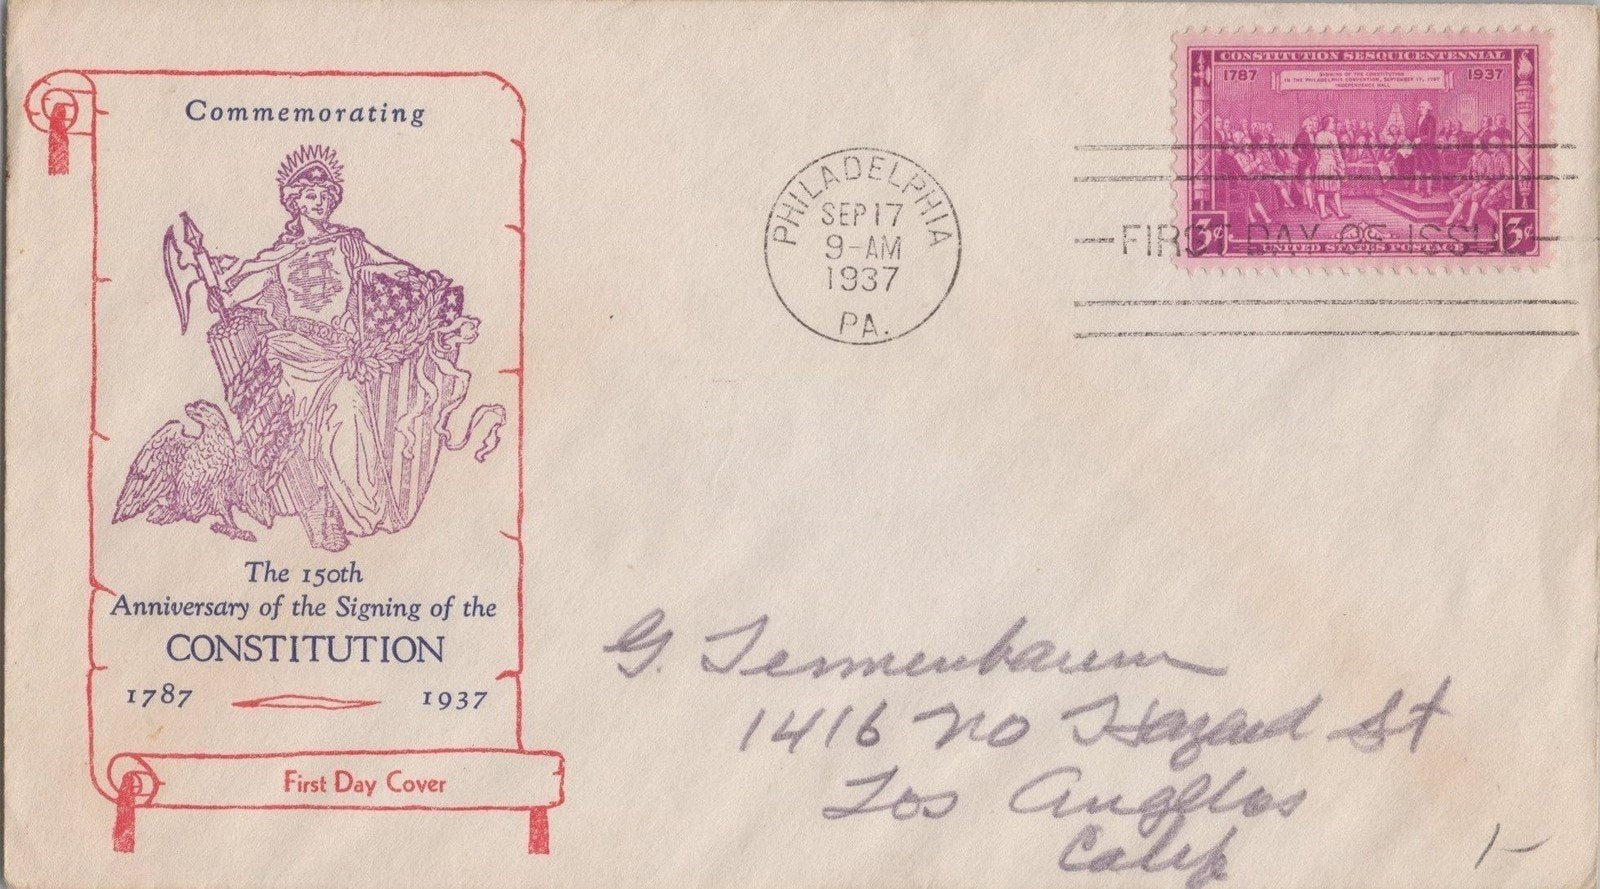 Commemorating
The 150th
Anniversary of the Signing of the
CONSTITUTION
1787 1937
First Day Cover
PHILADELPHIA
SEP 17
9-AM
1937
PA.
CONSTITUTION SESQUICENTENNIAL
1787 1937
SIGNING OF THE CONSTITUTION
IN THE PHILADELPHIA CONVENTION, SEPTEMBER 17, 1787
INDEPENDENCE HALL
FIRST DAY OF ISSUE
3¢ UNITED STATES POSTAGE 3¢
G. Tennenbaum
1416 No Hazard St
Los Angeles
Calif
1-